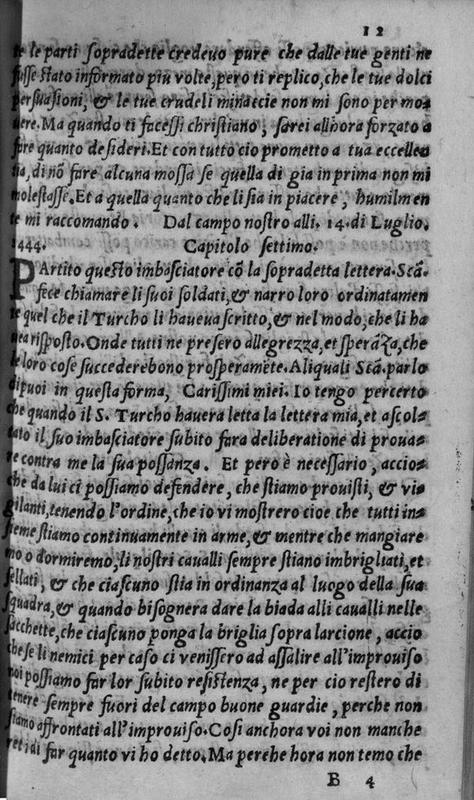 12
te le parti sopradette credeuo pure che dalle tue genti ne
fosse stato informato piu volte, pero ti replico, che le tue dolci
persuasioni, & le tue crudeli minaccie non mi sono per mo-
uere. Ma quando ti facessi christiano, sarei allhora forzato a
fare quanto desideri. Et con tutto cio prometto a tua eccellen
tia, di nō fare alcuna mossa se quella di gia in prima non mi
molestasse. Et a quella quanto che li sia in piacere, humilmen
te mi raccomando. Dal campo nostro alli. 14. di Luglio.
1444. Capitolo settimo.
PArtito questo imbasciatore cō la sopradetta lettera. Scā.
fece chiamare li suoi soldati, & narro loro ordinatamen
te quel che il Turcho li haueua scritto, & nel modo, che li ha
uea risposto. Onde tutti ne presero allegrezza, et sperāza, che
le loro cose succederebono prosperamēte. Aliquali Scā. parlo
dipuoi in questa forma, Carissimi miei. Io tengo percerto
che quando il S. Turcho hauera letta la lettera mia, et ascol-
tato il suo imbasciatore subito fara deliberatione di proua-
re contra me la sua possanza. Et pero è necessario, accio-
che da lui ci possiamo defendere, che stiamo prouisti, & vi-
gilanti, tenendo l'ordine, che io vi mostrero cioe che tutti in-
sieme stiamo continuamente in arme, & mentre che mangiare
mo o dormiremo, li nostri caualli sempre stiano imbrigliati, et
sellati, & che ciascuno stia in ordinanza al luogo della sua
squadra, & quando bisognera dare la biada alli caualli nelle
sacchette, che ciascuno ponga la briglia sopra larcione, accio
che se li nemici per caso ci venissero ad assalire all'improuiso
noi possiamo far lor subito resistenza, ne per cio restero di
tenere sempre fuori del campo buone guardie, perche non
siamo affrontati all'improuiso. Cosi anchora voi non manche
reti di far quanto vi ho detto. Ma perche hora non temo che
B 4